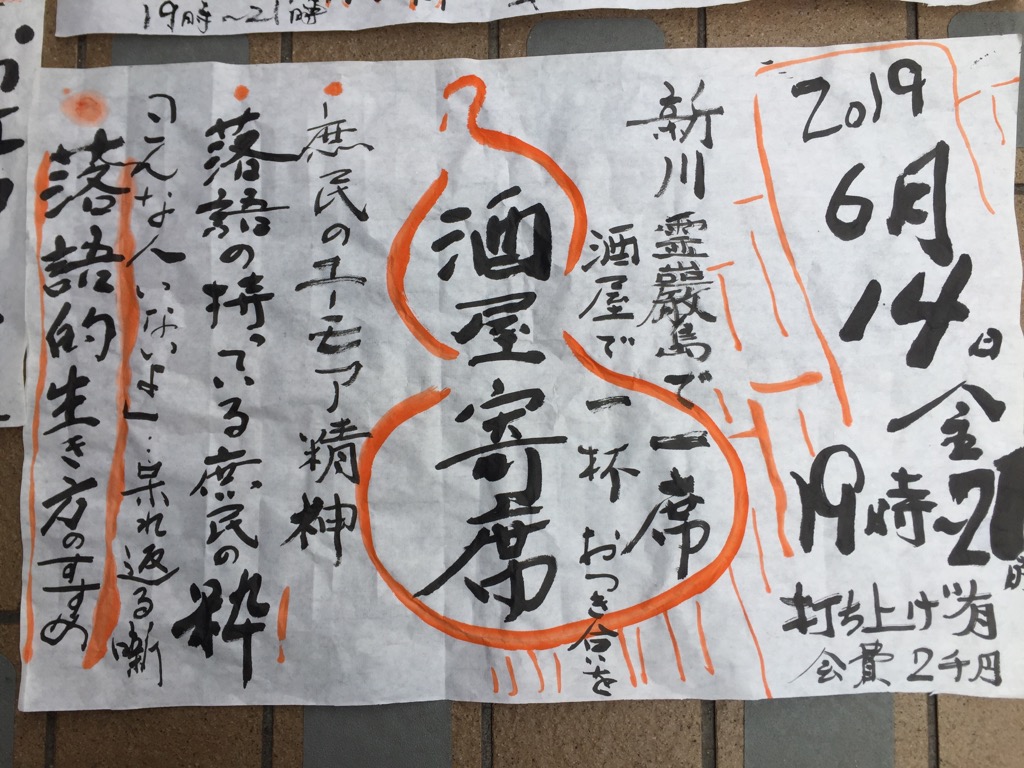 19時~21時
2019
6月
14日
金
19時~21時
打ち上げ有
会費 2千円
新川 霊巌島で一席
酒屋で一杯 おつき合を
酒屋寄席
・庶民のユーモア精神
・落語の持っている庶民の粋!
「こんな人いないよ」…呆れ返る噺
落語的生き方のすすめ